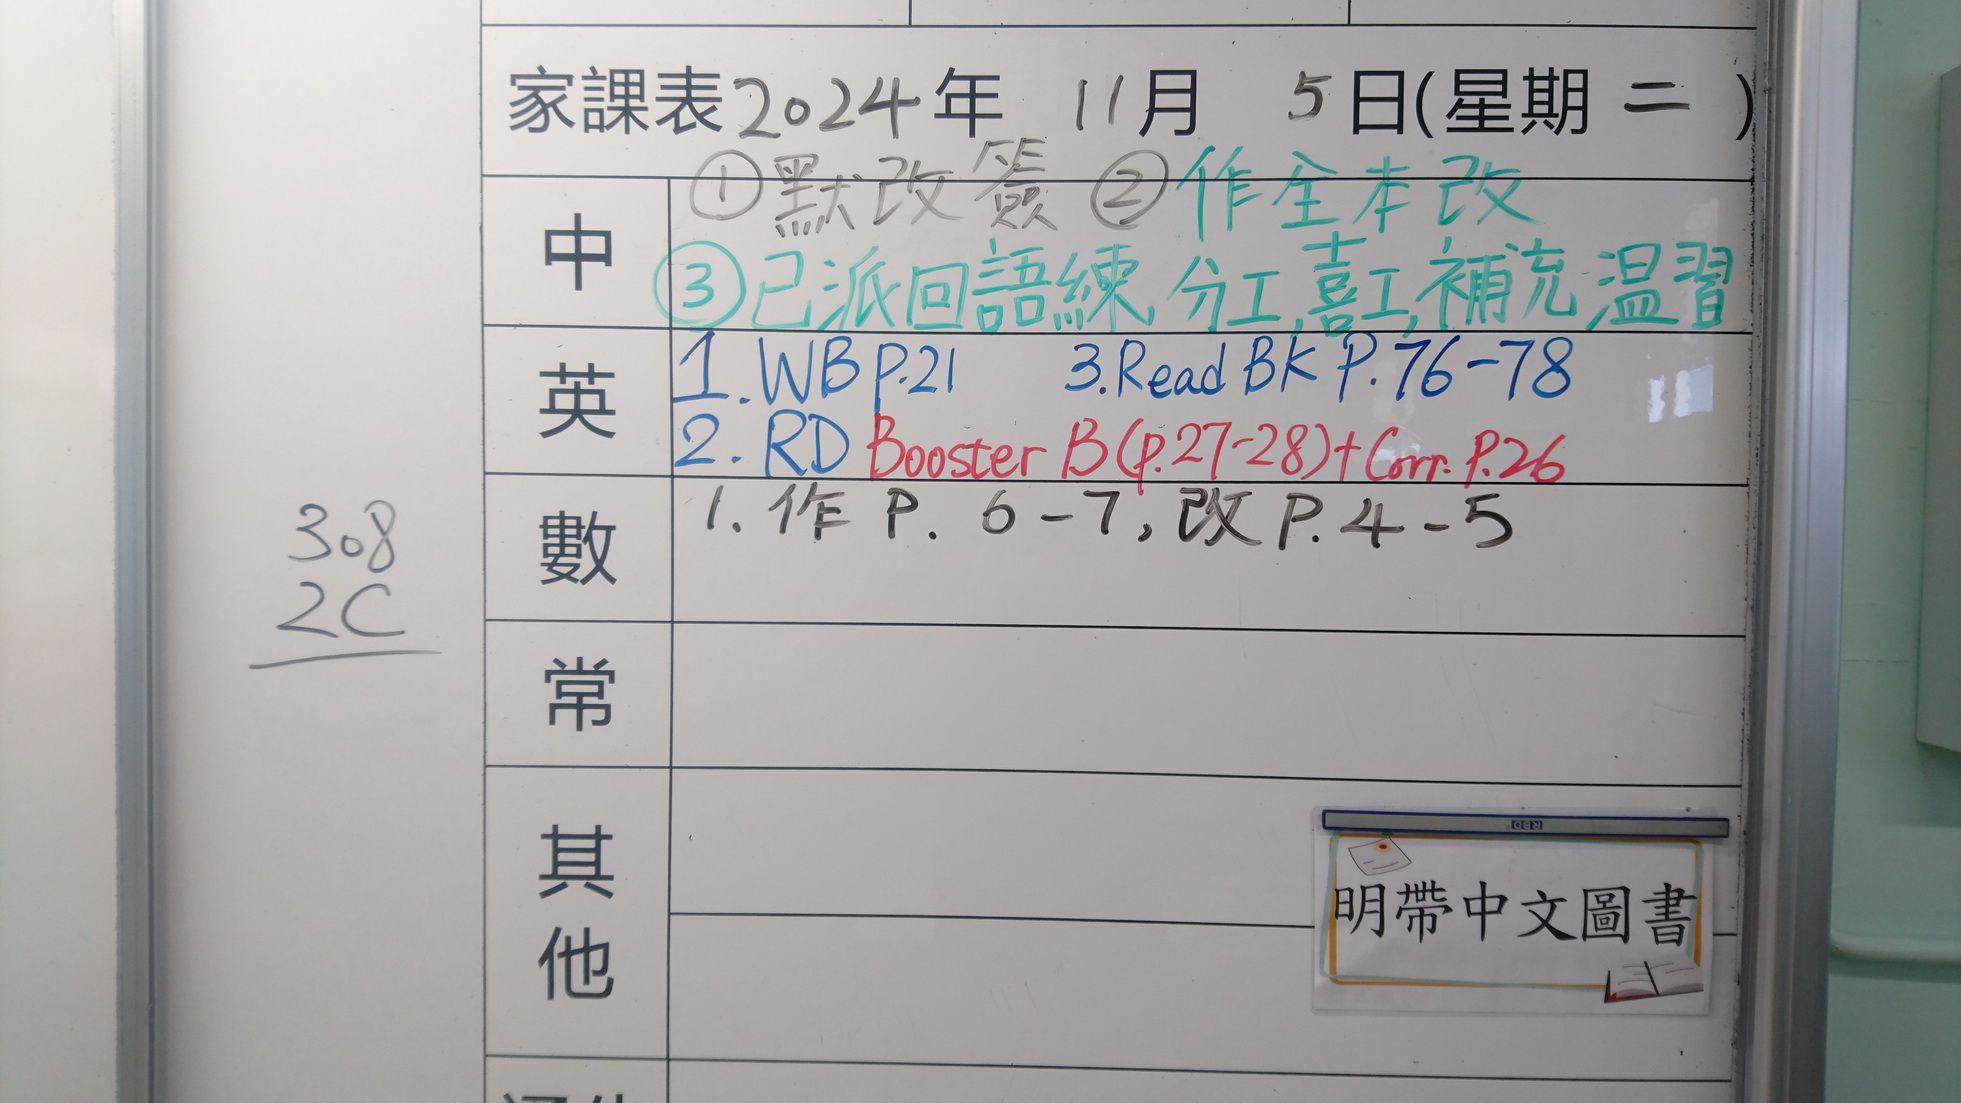 家課表2024年 11月 5日(星期 二 )
中
①默改簽 ②作全本改
③已派回語練,分工,喜工,補充温習
英
1.WB P.21 3.Read BK P.76-78
2.RD Booster B(p.27-28)+Corr. P.26
數
1.作 P. 6-7,改 P.4-5
常
其他
明帶中文圖書
308
2C